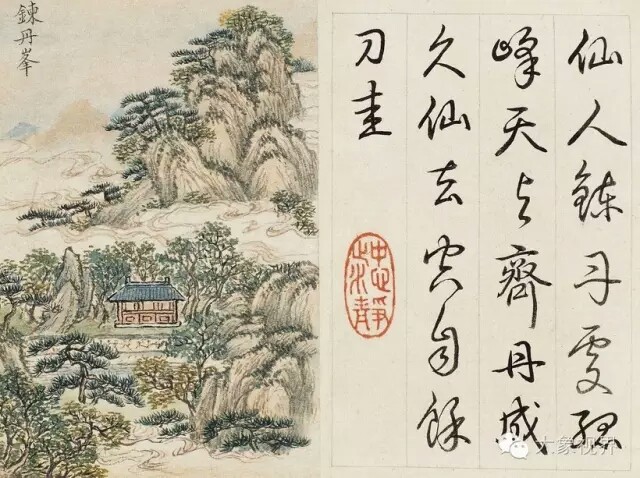 鍊丹峯
仙人鍊丹處孤
峰天与齊丹成
久仙去空自餘
刀圭
大象视界